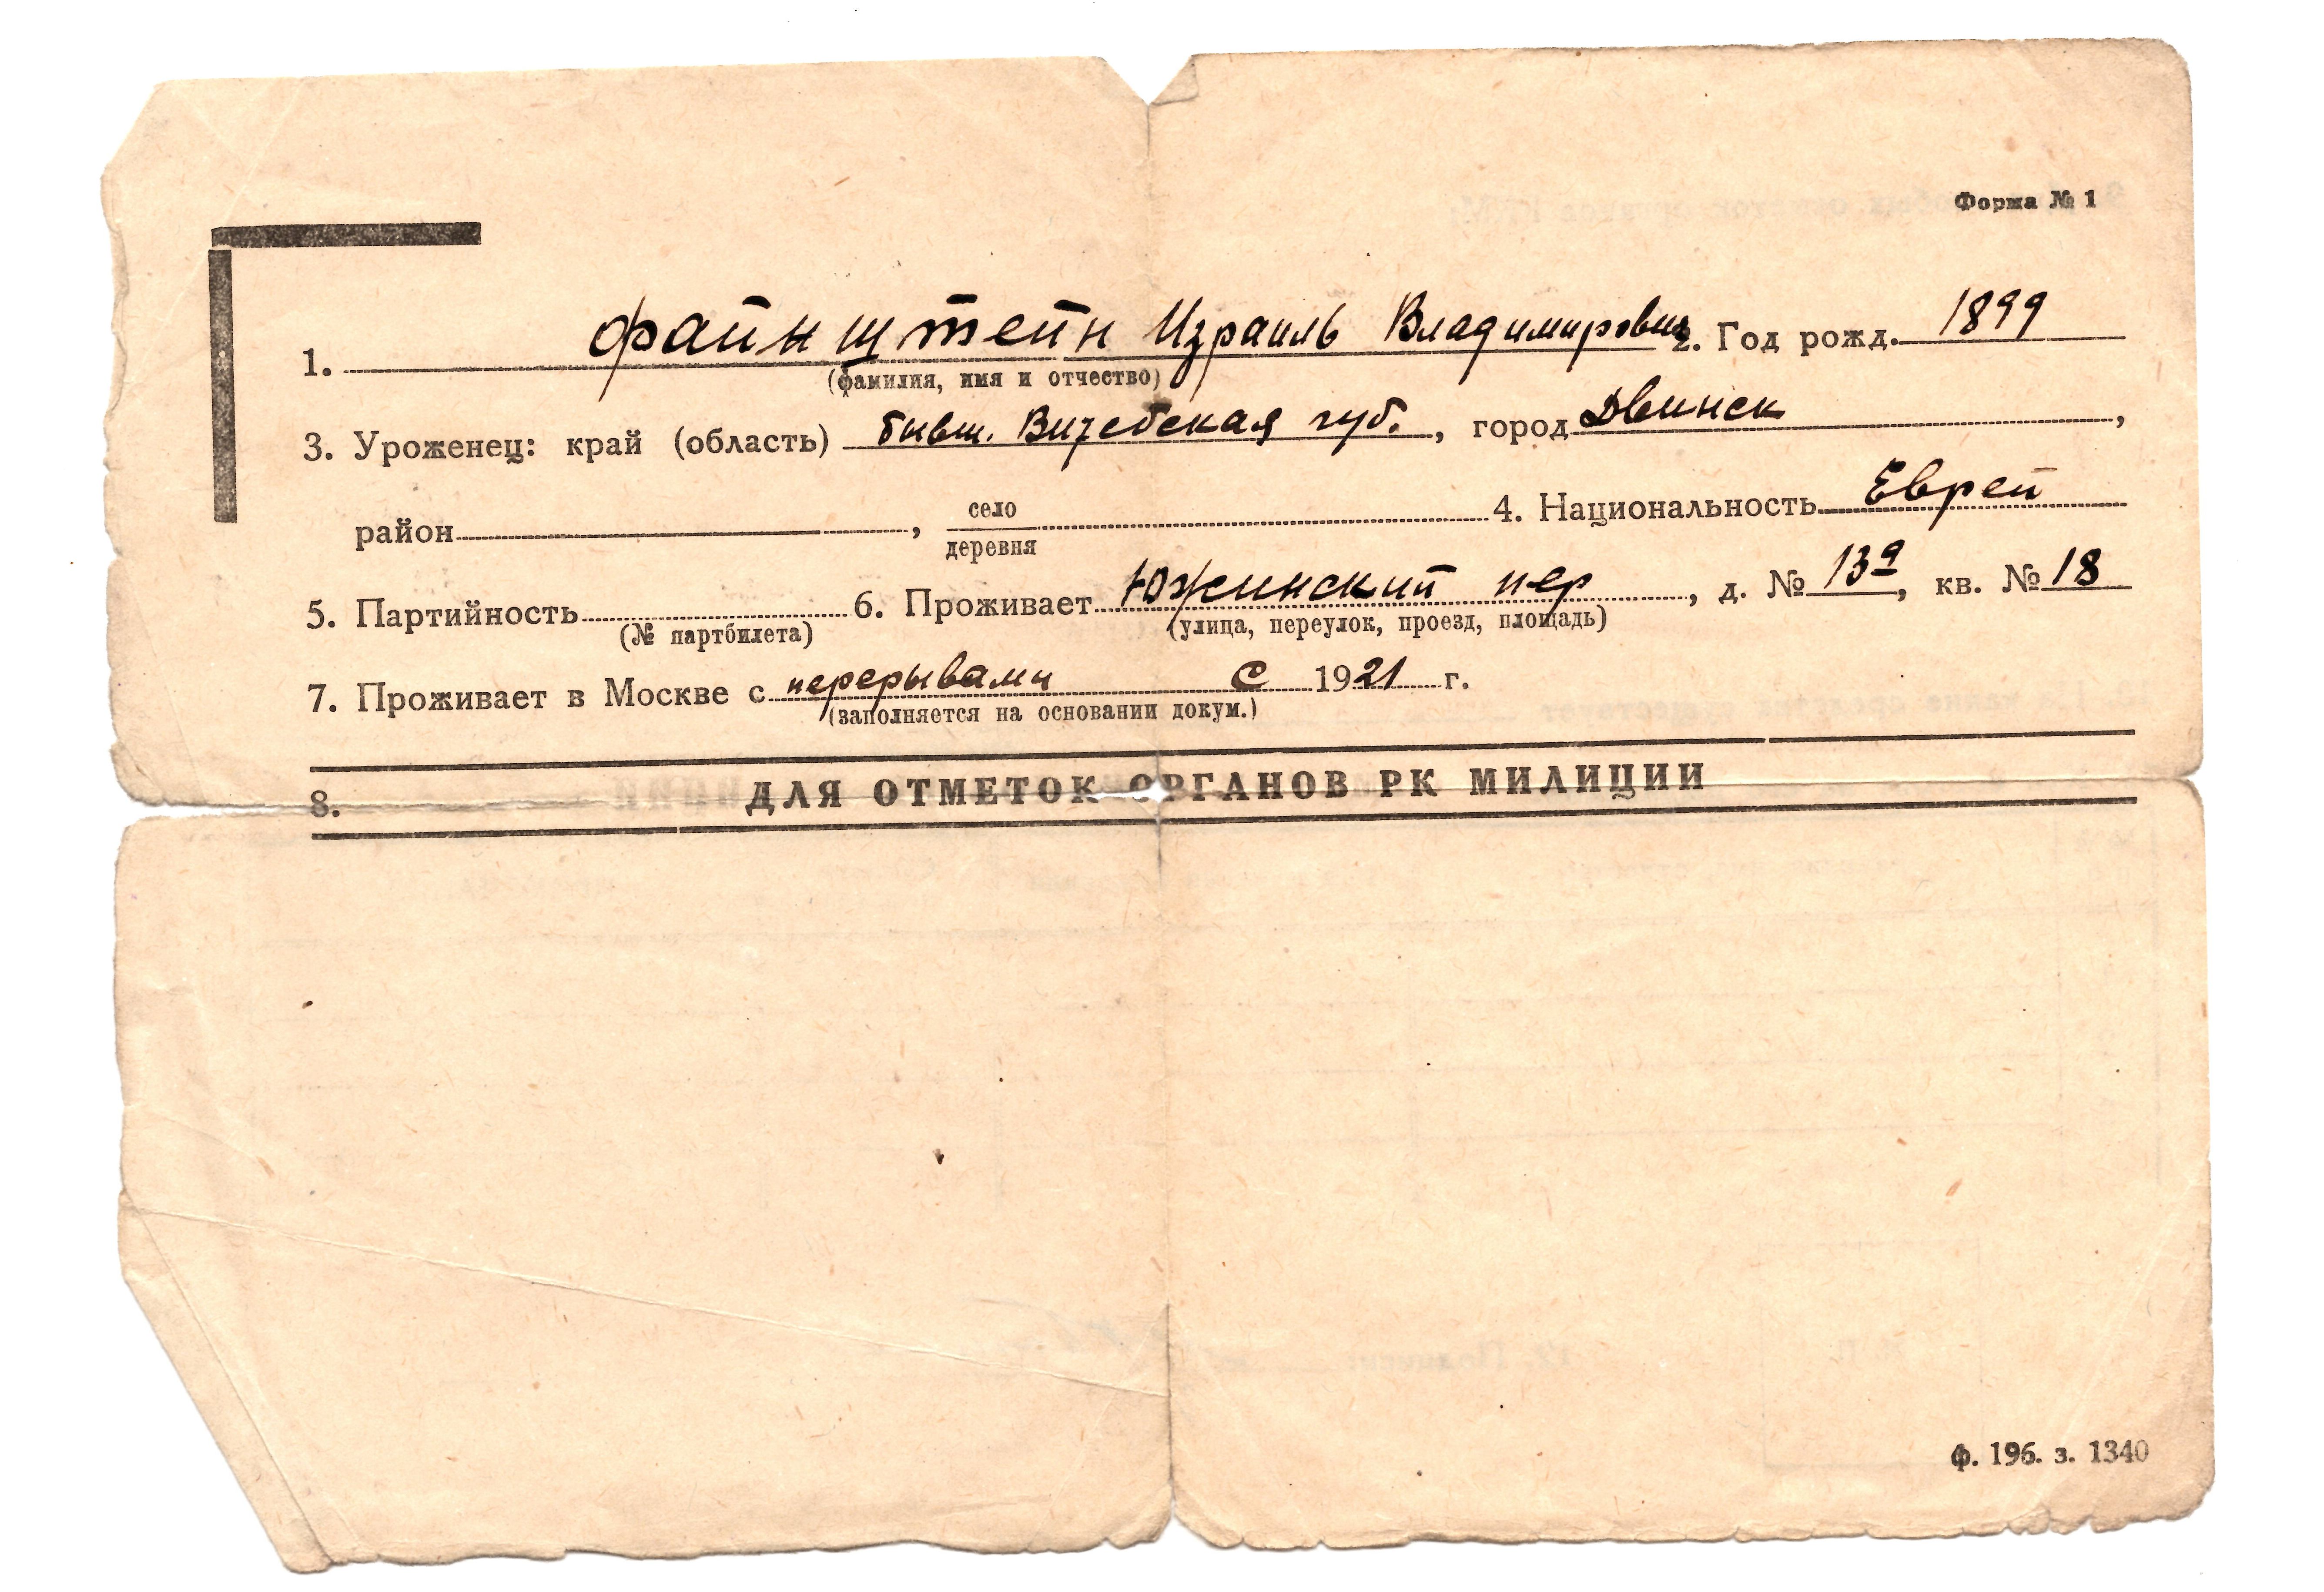 Форма № 1
1. Файнштейн Израиль Владимирович 2. Год рожд. 1899
(фамилия, имя и отчество)
3. Уроженец: край (область) бывш. Витебская губ., город Двинск,
район , село 4. Национальность Еврей
деревня
5. Партийность 6. Проживает Южинский пер, д. № 13а, кв. № 18
(№ партбилета) (улица, переулок, проезд, площадь)
7. Проживает в Москве с перерывами с 1921 г.
(заполняется на основании докум.)
8. ДЛЯ ОТМЕТОК ОРГАНОВ РК МИЛИЦИИ
ф. 196. з. 1340